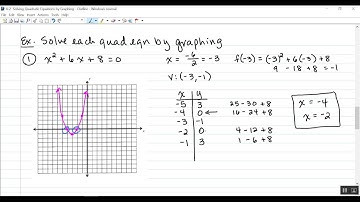 8.2 Solving Quadratic Equations by Graphing - OneNote - Windows Journal
Ex. Solve each quad eqn by graphing
① x² + 6x + 8 = 0
x = -6/2 = -3
f(-3) = (-3)² + 6(-3) + 8
9 - 18 + 8 = -1
V: (-3, -1)
x y
-5 3 25 - 30 + 8
-4 0 ← 16 - 24 + 8
-3 -1
-2 0 4 - 12 + 8
-1 3 1 - 6 + 8
x = -4
x = -2